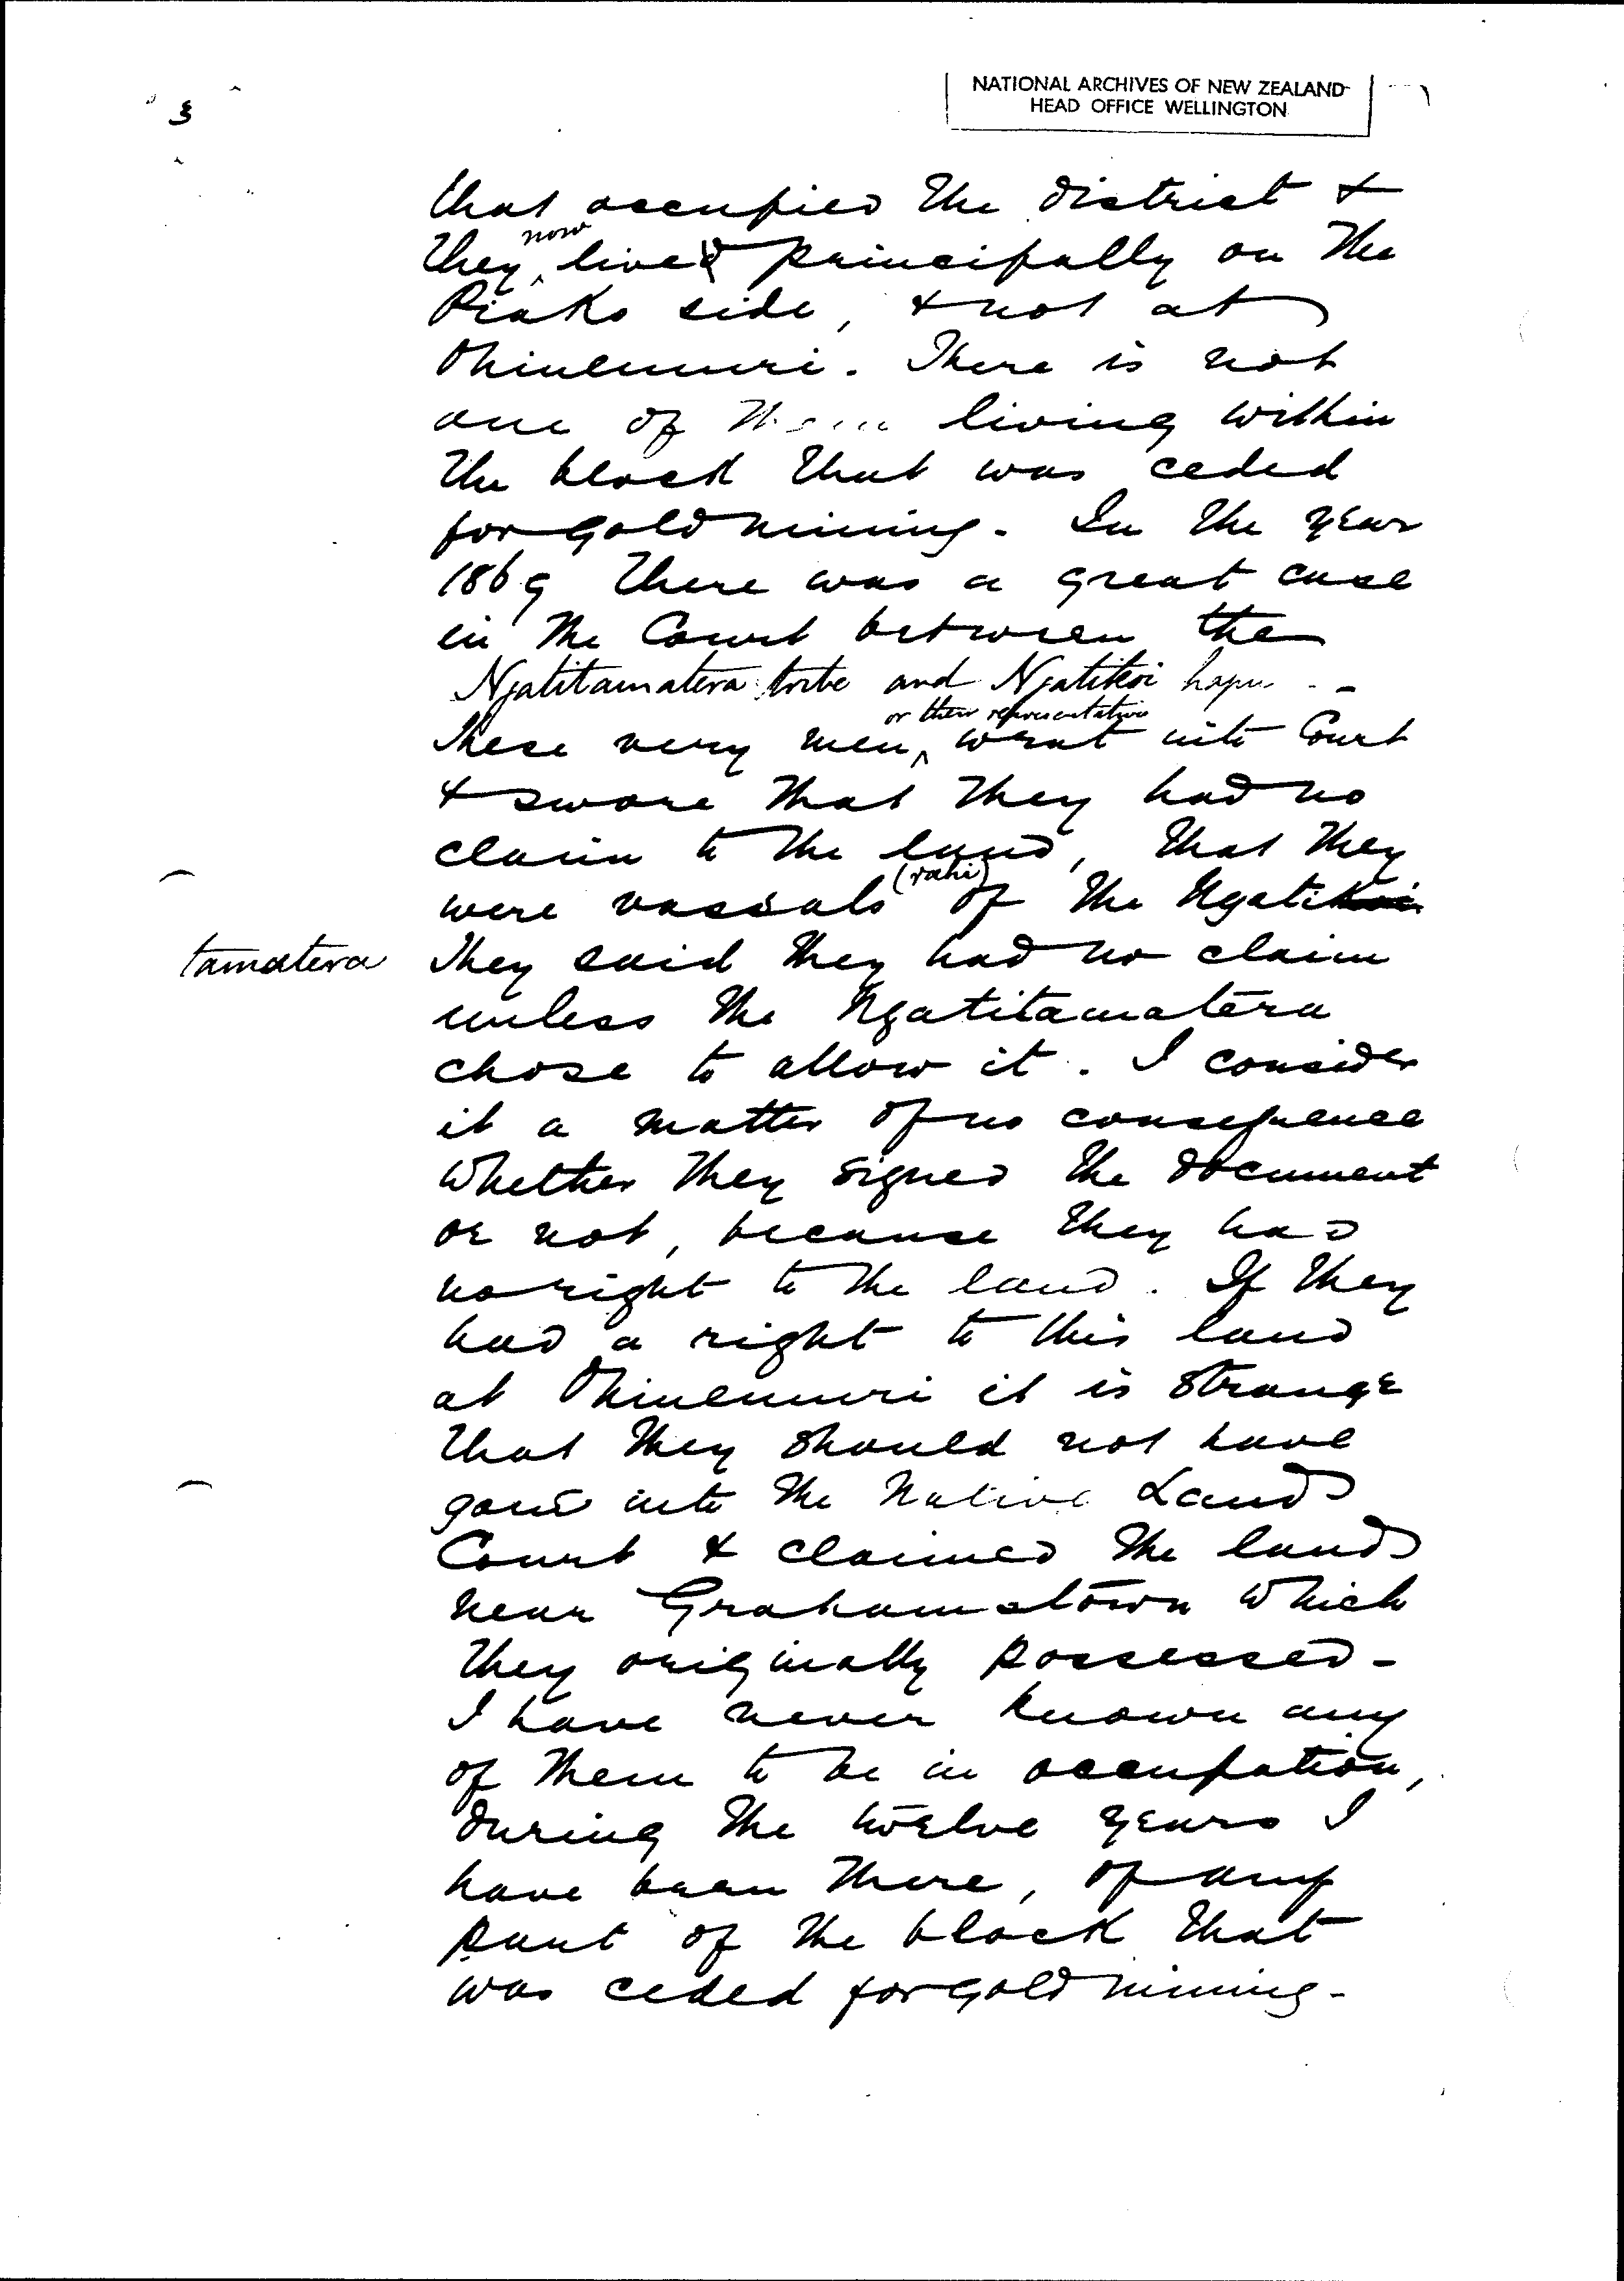 3
NATIONAL ARCHIVES OF NEW ZEALAND
HEAD OFFICE WELLINGTON
that occupied the district &
now
they lived principally on the
Piako side, & not at
Ohinemuri. There is not
one of them living within
the block that was ceded
for gold mining. In the year
1869 there was a great case
in the Court between the
Ngatitamatera tribe and Ngatikoi hapu -
or their representatives
these very men, went into Court
& swore that they had no
claim to the land, that they
(rahi)
were vassals of the Ngatikoi
tamatera
They said they had no claim
unless the Ngatitamatera
chose to allow it. I consider
it a matter of no consequence
whether they signed the document
or not, because they had
no right to the land. If they
had a right to this land
at Ohinemuri it is strange
that they should not have
gone into the Native Lands
Court & claimed the land
near Grahamstown which
they originally possessed -
I have never known any
of them to be in occupation,
during the twelve years I
have been there, of any
part of the block that
was ceded for gold mining -